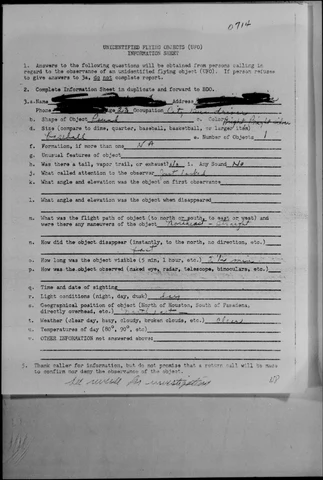 0714
UNIDENTIFIED FLYING OBJECTS (UFO)
INFORMATION SHEET
1. Answers to the following questions will be obtained from persons calling in
regard to the observance of an unidentified flying object (UFO). If person refuse
to give answers to 3a, do not complete report.
2. Complete Information Sheet in duplicate and forward to EDO.
3.a. Name Address
Phone Age 23 Occupation City
b. Shape of Object Round c. Color Bright
d. Size (compare to dime, quarter, baseball, basketball, or larger item)
Baseball e. Number of Objects 1
f. Formation, if more than one NA
g. Unusual features of object
h. Was there a tail, vapor trail, or exhaust? No i. Any Sound No
j. What called attention to the observer Just looked
k. What angle and elevation was the object on first observance
l. What angle and elevation was the object when disappeared
m. What was the flight path of object (to north or south, to east or west) and
were there any maneuvers of the object
n. How did the object disappear (instantly, to the north, to direction, etc.)
o. How long was the object visible (5 min, 1 hour, etc.)
p. How was the object observed (naked eye, radar, telescope, binoculars, etc.)
q. Time and date of sighting
r. Light conditions (night, day, dusk)
s. Geographical position of object (North of Houston, South of Pasadena,
directly overhead, etc.)
t. Weather (clear day, hazy, cloudy, broken clouds, etc.) Clear
u. Temperatures of day (80°, 90°, etc)
v. OTHER INFORMATION not answered above:
3. Thank caller for information, but do not promise that a return call will be made
to confirm nor deny the observance of the object.
See reverse for investigation